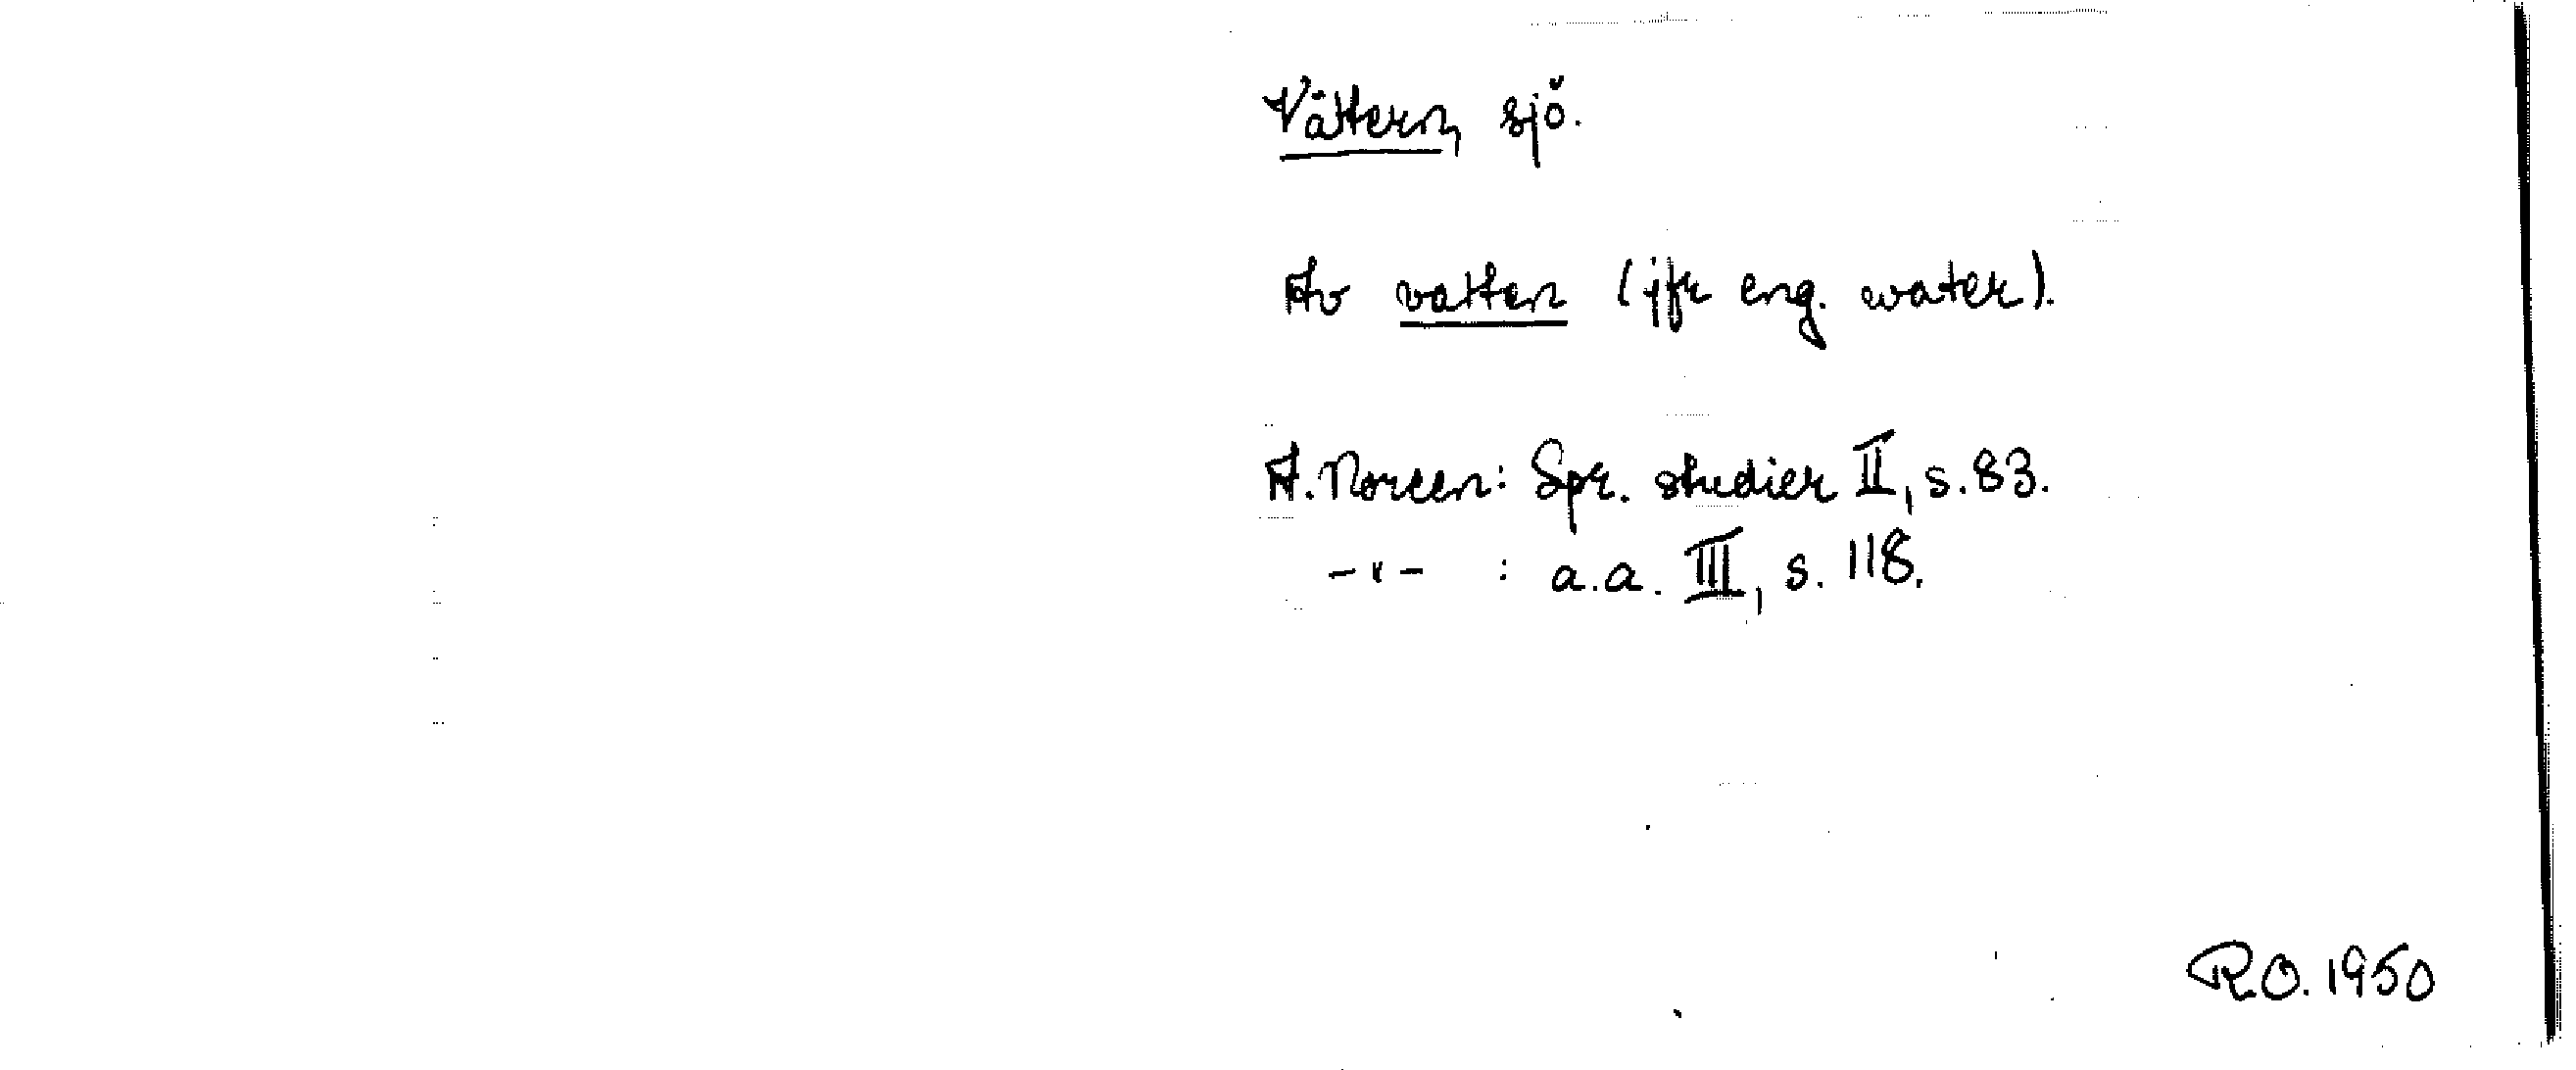 Vättern, sjö.
Av vatten (jfr eng. water).
A. Noreen: Spr. studier II, s. 83.
-"- : a.a. III, s. 118.
R.O. 1950